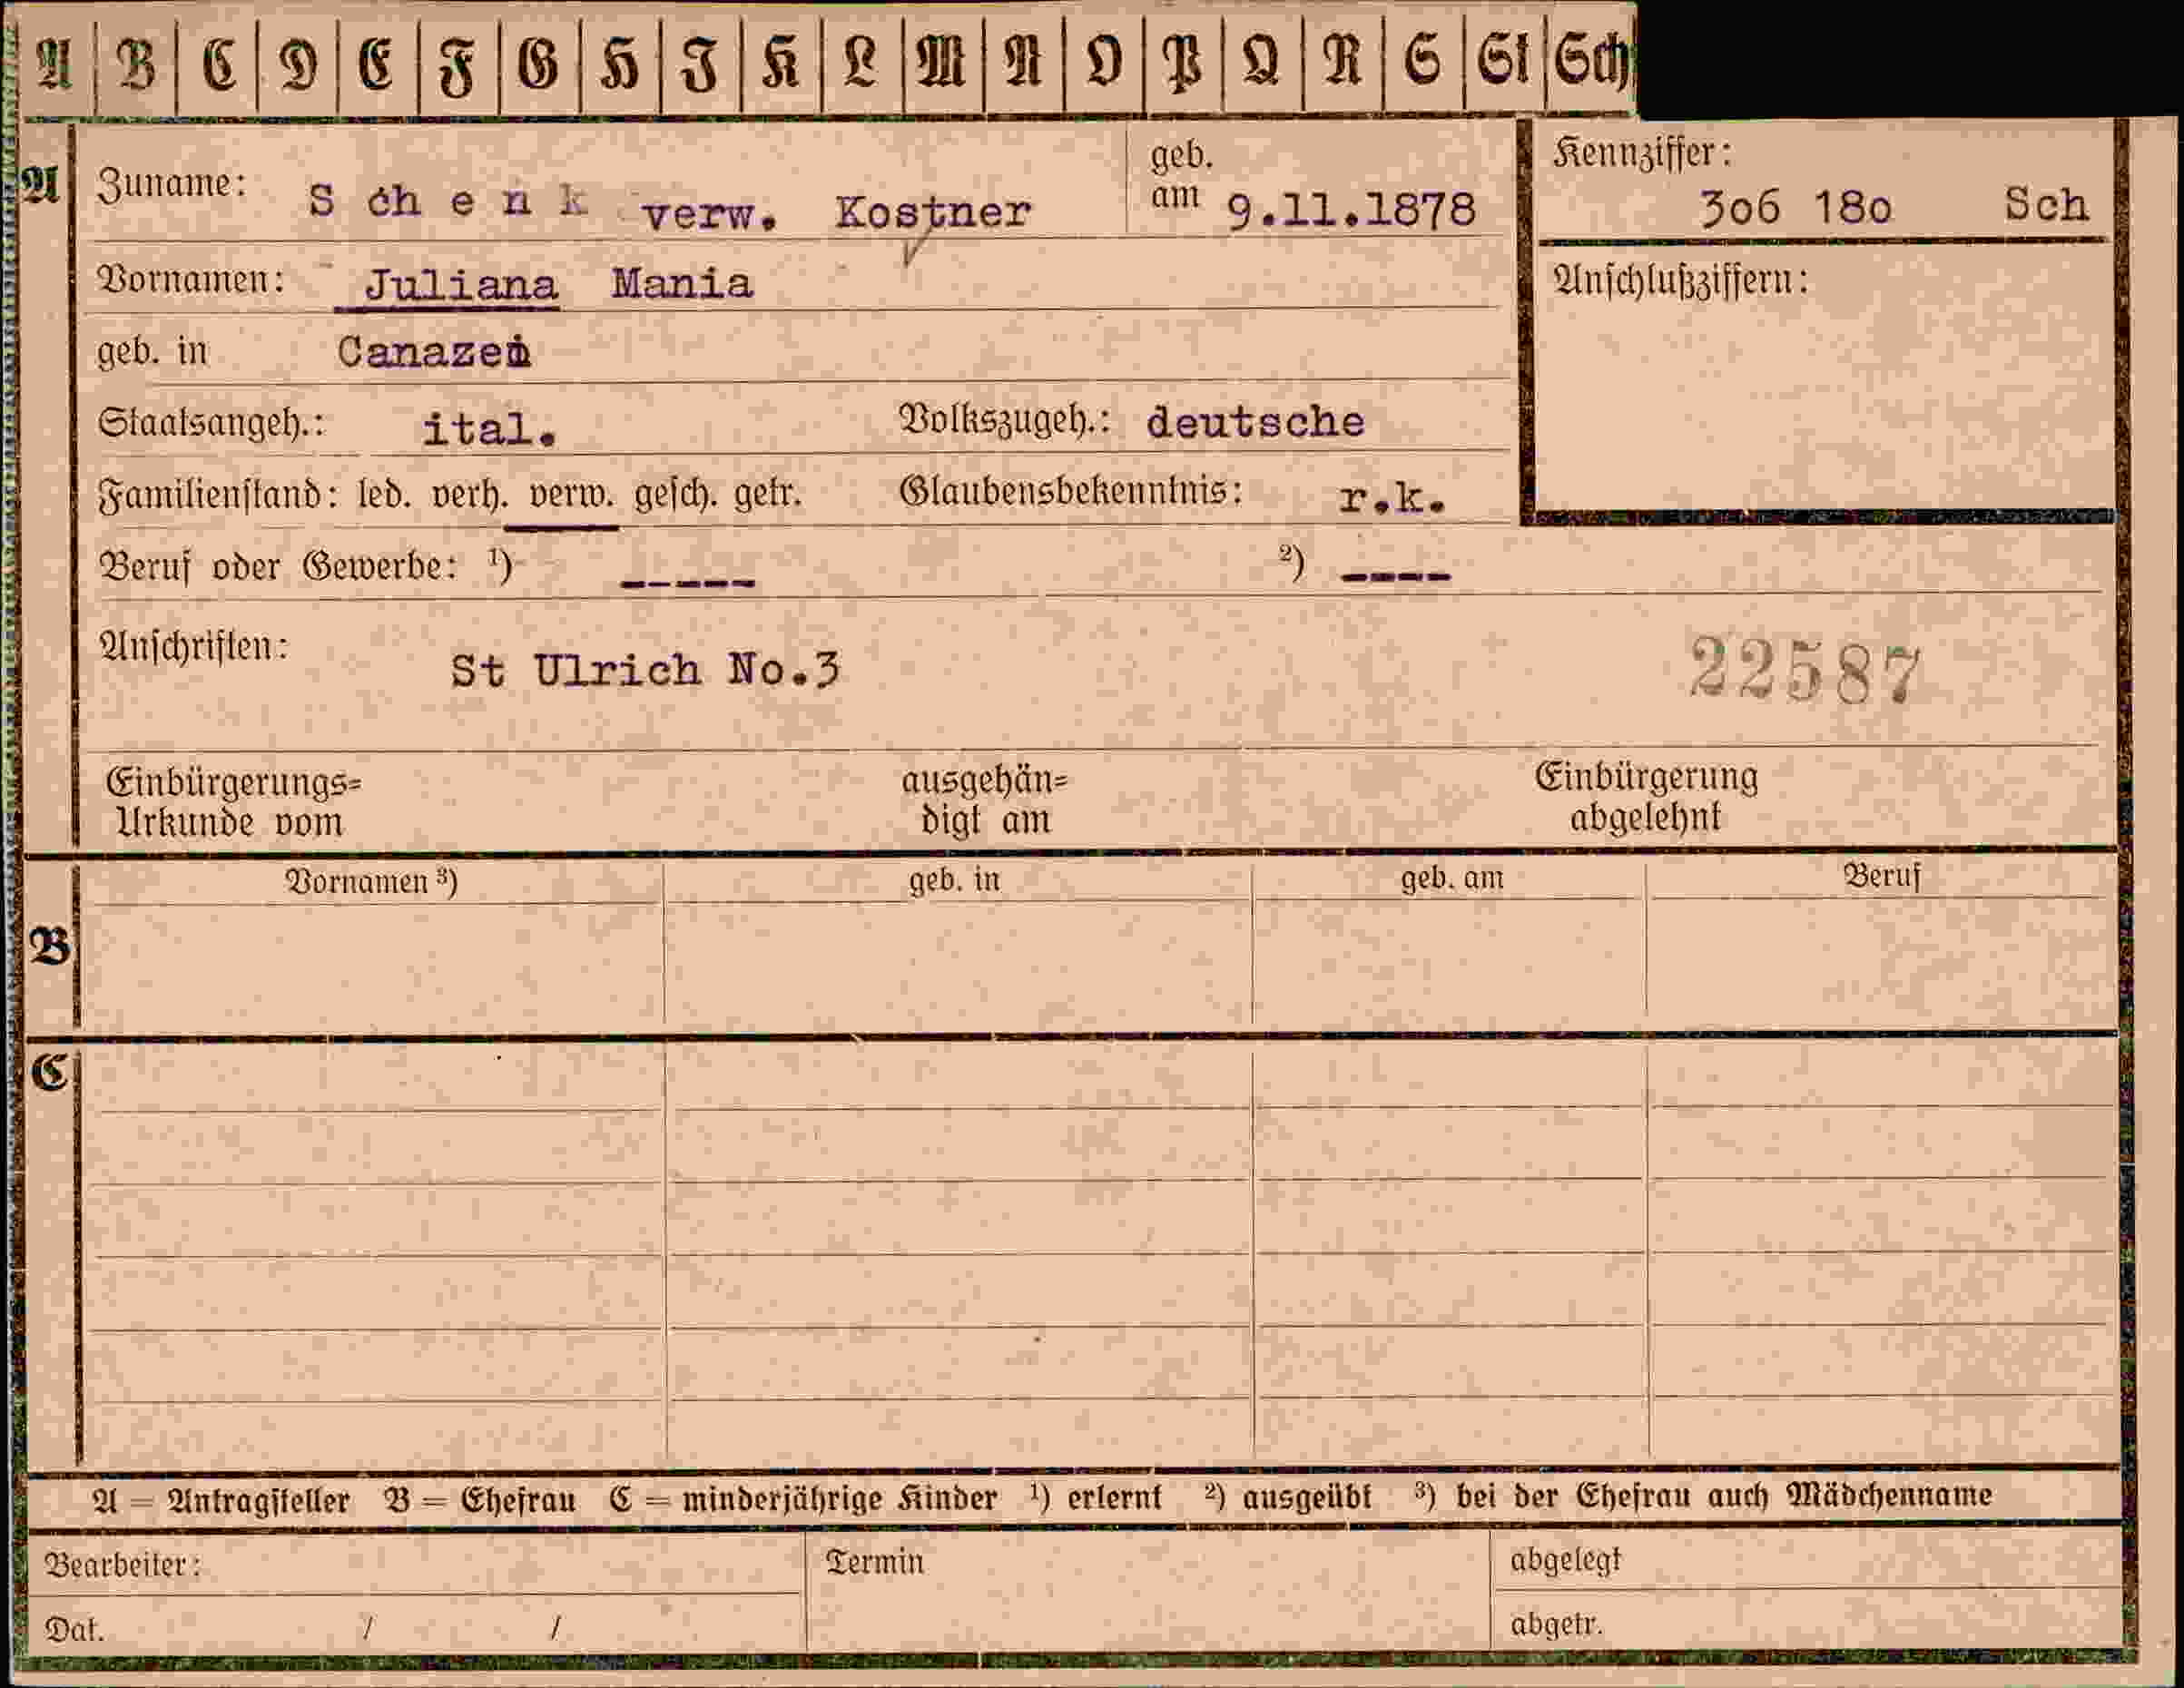 A B C D E F G H I K L M N O P Q R S St Sch
A
Zuname: Schenk verw. Kostner geb. am 9.11.1878
Kennziffer: 306 180 Sch
Vornamen: Juliana Mania
Anschlußziffern:
geb. in Canazei
Staatsangeh.: ital. Volkszugeh.: deutsche
Familienstand: led. verh. verw. gesch. getr. Glaubensbekenntnis: r.k.
Beruf oder Gewerbe: ¹) ----- ²) ----
Anschriften: St Ulrich No.3 22587
Einbürgerungs= ausgehän= Einbürgerung
Urkunde vom digt am abgelehnt
B
Vornamen ³) geb. in geb. am Beruf
C
A = Antragsteller B = Ehefrau C = minderjährige Kinder ¹) erlernt ²) ausgeübt ³) bei der Ehefrau auch Mädchenname
Bearbeiter: Termin abgelegt
Dat. / / abgetr.